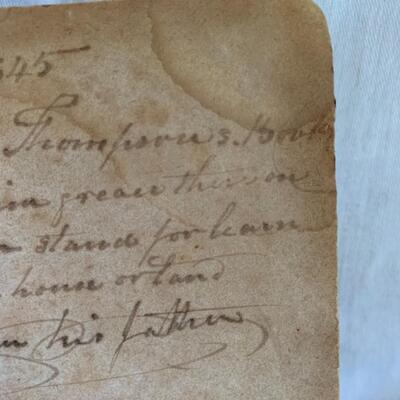 645
Thompson s. Book
grean ther on
stand for learn
house or land
his father